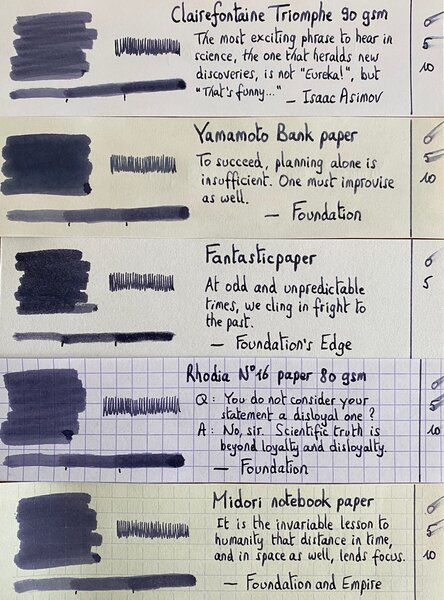 Clairefontaine Triomphe 90 gsm
The most exciting phrase to hear in
science, the one that heralds new
discoveries, is not "Eureka!", but
"That's funny..." — Isaac Asimov
0
5
10
Yamamoto Bank paper
To succeed, planning alone is
insufficient. One must improvise
as well.
— Foundation
0
5
10
Fantasticpaper
At odd and unpredictable
times, we cling in fright to
the past.
— Foundation's Edge
0
5
Rhodia N°16 paper 80 gsm
Q: You do not consider your
statement a disloyal one ?
A: No, sir. Scientific truth is
beyond loyalty and disloyalty.
— Foundation
0
5
10
Midori notebook paper
It is the invariable lesson to
humanity that distance in time,
and in space as well, lends focus.
— Foundation and Empire
0
5
10